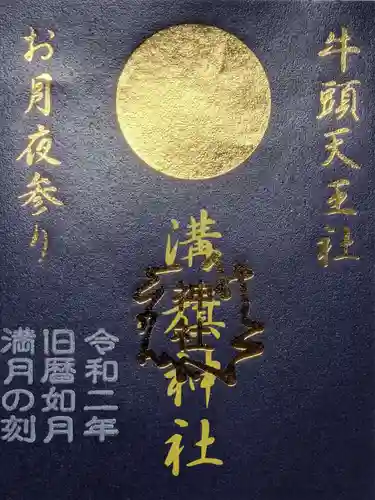 牛頭天王社
溝旗神社
お月夜参り
令和二年
旧暦如月
満月の刻